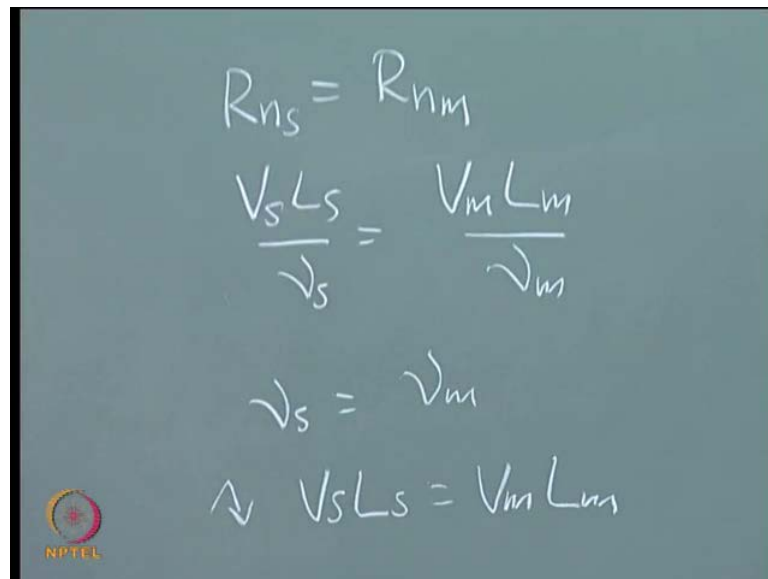 Rns = Rnm
VsLs/νs = VmLm/νm
νs = νm
∿ VsLs = VmLm
NPTEL